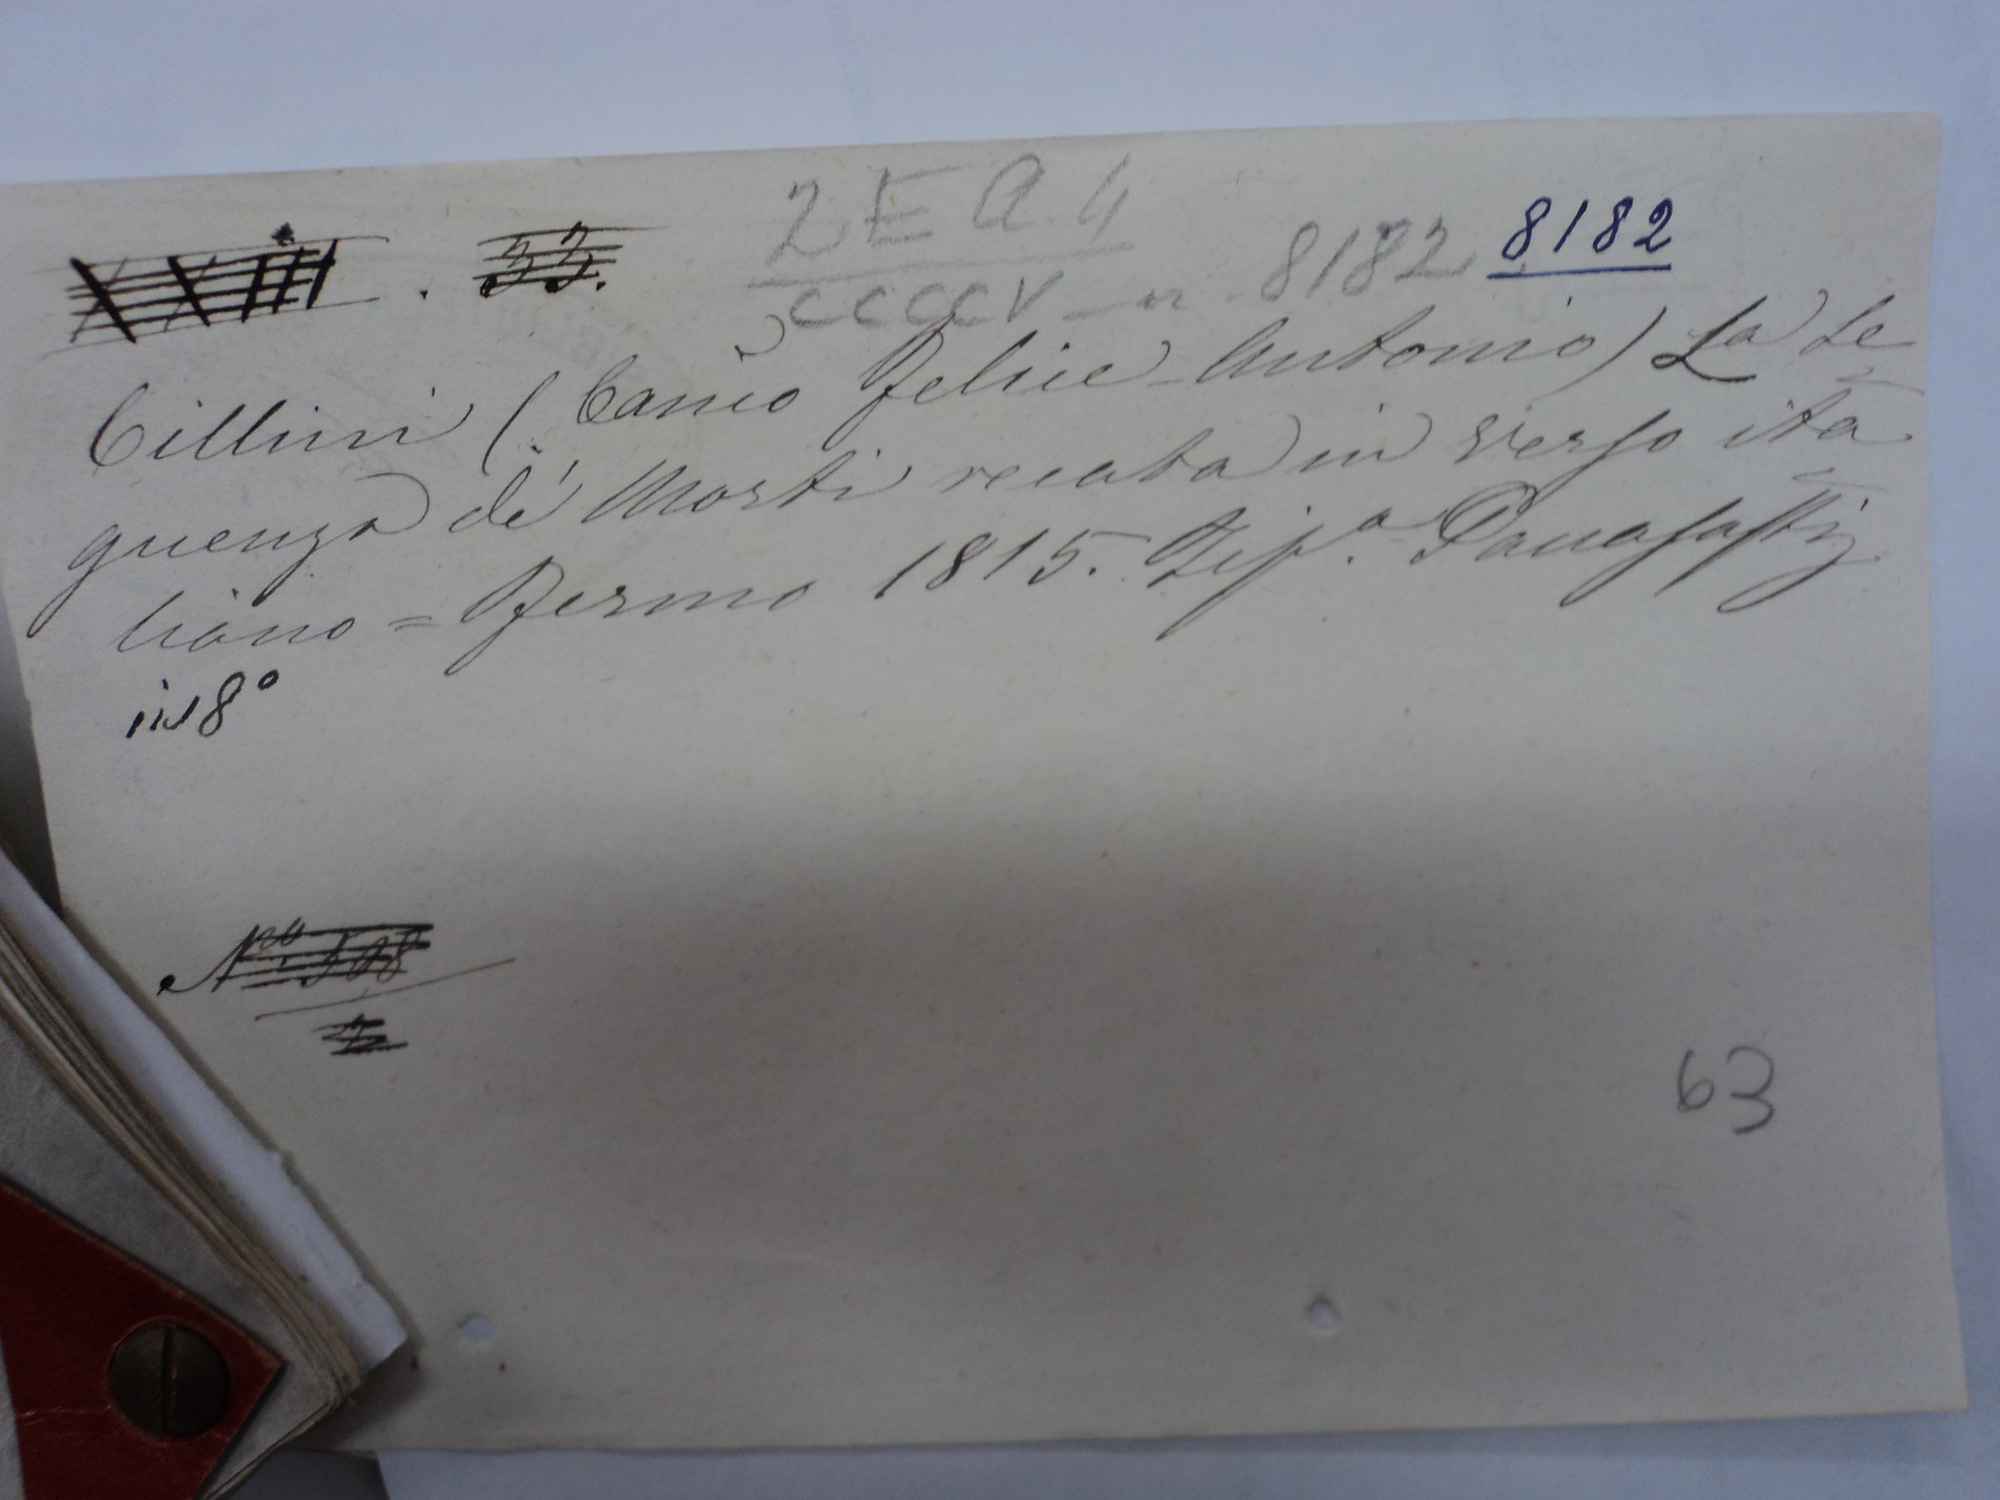 2 E A 4
XXIII . 33.
CCCCV - n. 8182 8182
Cillini (Canio Felice Antonio) La se
guenza de' Morti recata in verso ita
liano = Fermo 1815. Tip.a
in 8°
No. 508
63